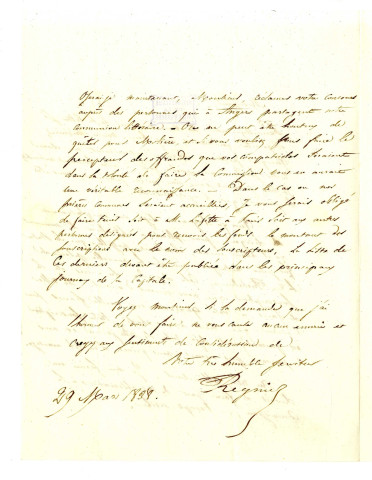 Oserai-je maintenant, Monsieur, réclamer votre concours
auprès des personnes qui à Angers partagent notre
communion littéraire. – On ne peut être honteux de
quêter pour Molière et si vous voulez vous faire le
percepteur des offrandes que vos sympathies seraient
dans le de faire la Commission vous en aurait
une véritable reconnaissance. – Dans le cas où nos
prières communes seraient accueillies, je vous serais obligé
de faire tenir soit à M. Lafitte à Paris soit aux autres
personnes désignées pour recevoir les fonds le montant des
souscriptions avec le nom des souscripteurs, la liste de
ces derniers devant être publiée dans les principaux
journaux de la Capitale.
Voyez monsieur si la demande que j'ai
l'honneur de vous faire ne vous cause aucun ennui et
croyez aux sentiments de considération de
Votre très humble serviteur
Regnier
29 Mars 1838.